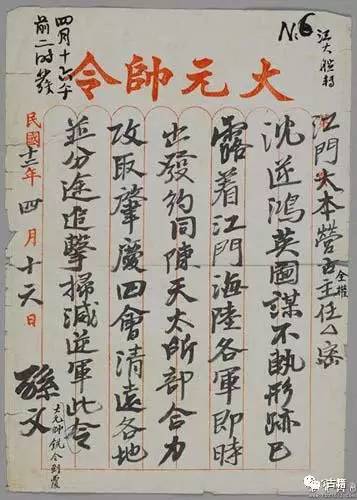 No 6
大元帥令
四月十六午
前二時發
江門大本營古主任
全權
沈逆鴻英圖謀不軌形跡已
露着江門海陸各軍即時
出發約同陳天太所部合力
攻取肇慶四會清遠各地
並分途追擊掃滅逆軍此令
孫文
民國十二年四月十六日
古籍